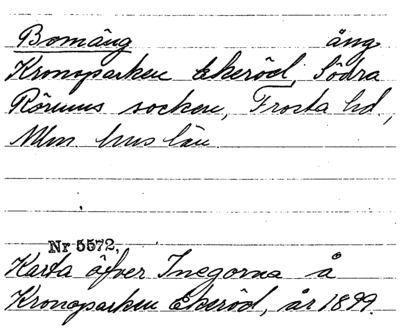 Bomäng äng
Kronoparken Ekeröd, Södra
Rörums socken, Frosta hd,
Mlm hus län.
Nr 5572.
Karta öfver Inegorna å
Kronoparken Ekeröd, år 1899.